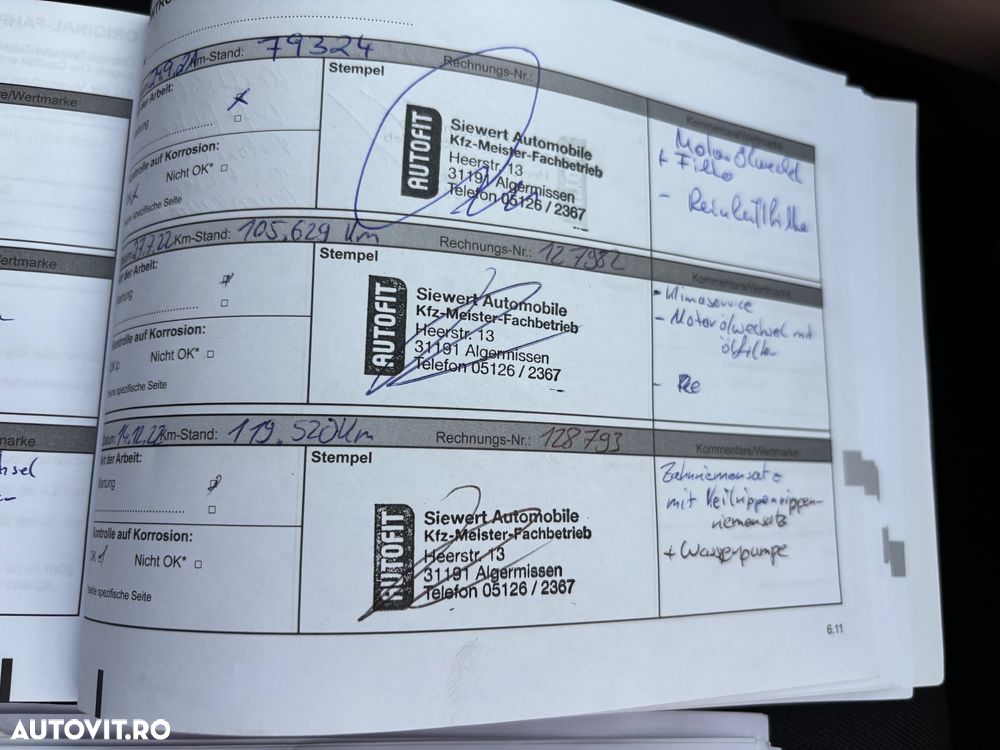 m-Stand: 79324
Rechnungs-Nr.:
der Arbeit:
Wartung
Kontrolle auf Korrosion:
Nicht OK*
siehe spezifische Seite
Stempel
AUTOFIT
Siewert Automobile
Kfz-Meister-Fachbetrieb
Heerstr. 13
31191 Algermissen
Telefon 05126 / 2367
Kommentare/Wertmarke
+ Filter
Datum: 27.7.22 Km-Stand: 105.629 Km
Rechnungs-Nr.: 127982
Art der Arbeit:
Wartung
Kontrolle auf Korrosion:
OK
Nicht OK*
siehe spezifische Seite
Stempel
AUTOFIT
Siewert Automobile
Kfz-Meister-Fachbetrieb
Heerstr. 13
31191 Algermissen
Telefon 05126 / 2367
Kommentare/Wertmarke
- Klimaservice
- Motorölwechsel mit
Ölfilter
Datum: Km-Stand: 119.520 Km
Rechnungs-Nr.: 128793
Art der Arbeit:
Wartung
Kontrolle auf Korrosion:
OK
Nicht OK*
siehe spezifische Seite
Stempel
AUTOFIT
Siewert Automobile
Kfz-Meister-Fachbetrieb
Heerstr. 13
31191 Algermissen
Telefon 05126 / 2367
Kommentare/Wertmarke
Zahnriemensatz
mit Keilrippenrippen-
riemensatz
+ Wasserpumpe
6.11
AUTOVIT.RO